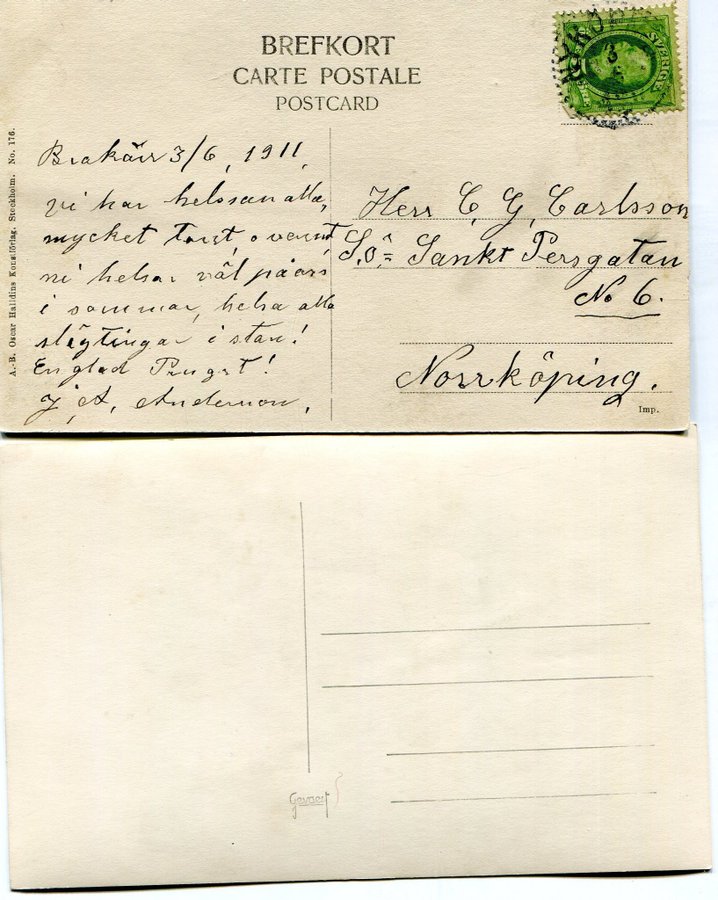 BREFKORT
CARTE POSTALE
POSTCARD
SVERIGE
3
A.-B. Oscar Halldins Konstförlag. Stockholm. No. 176.
Brakärr 3/6, 1911,
vi har helsan alla,
mycket torst, o varmt
ni helsar väl på oss
i sommar, helsa alla
slägtingar i stan!
En glad Pingst!
J, A, Anderson,
Herr C, G, Carlsson
S,ö,= Sankt Persgatan
No 6.
Norrköping.
Imp.
Gevaert